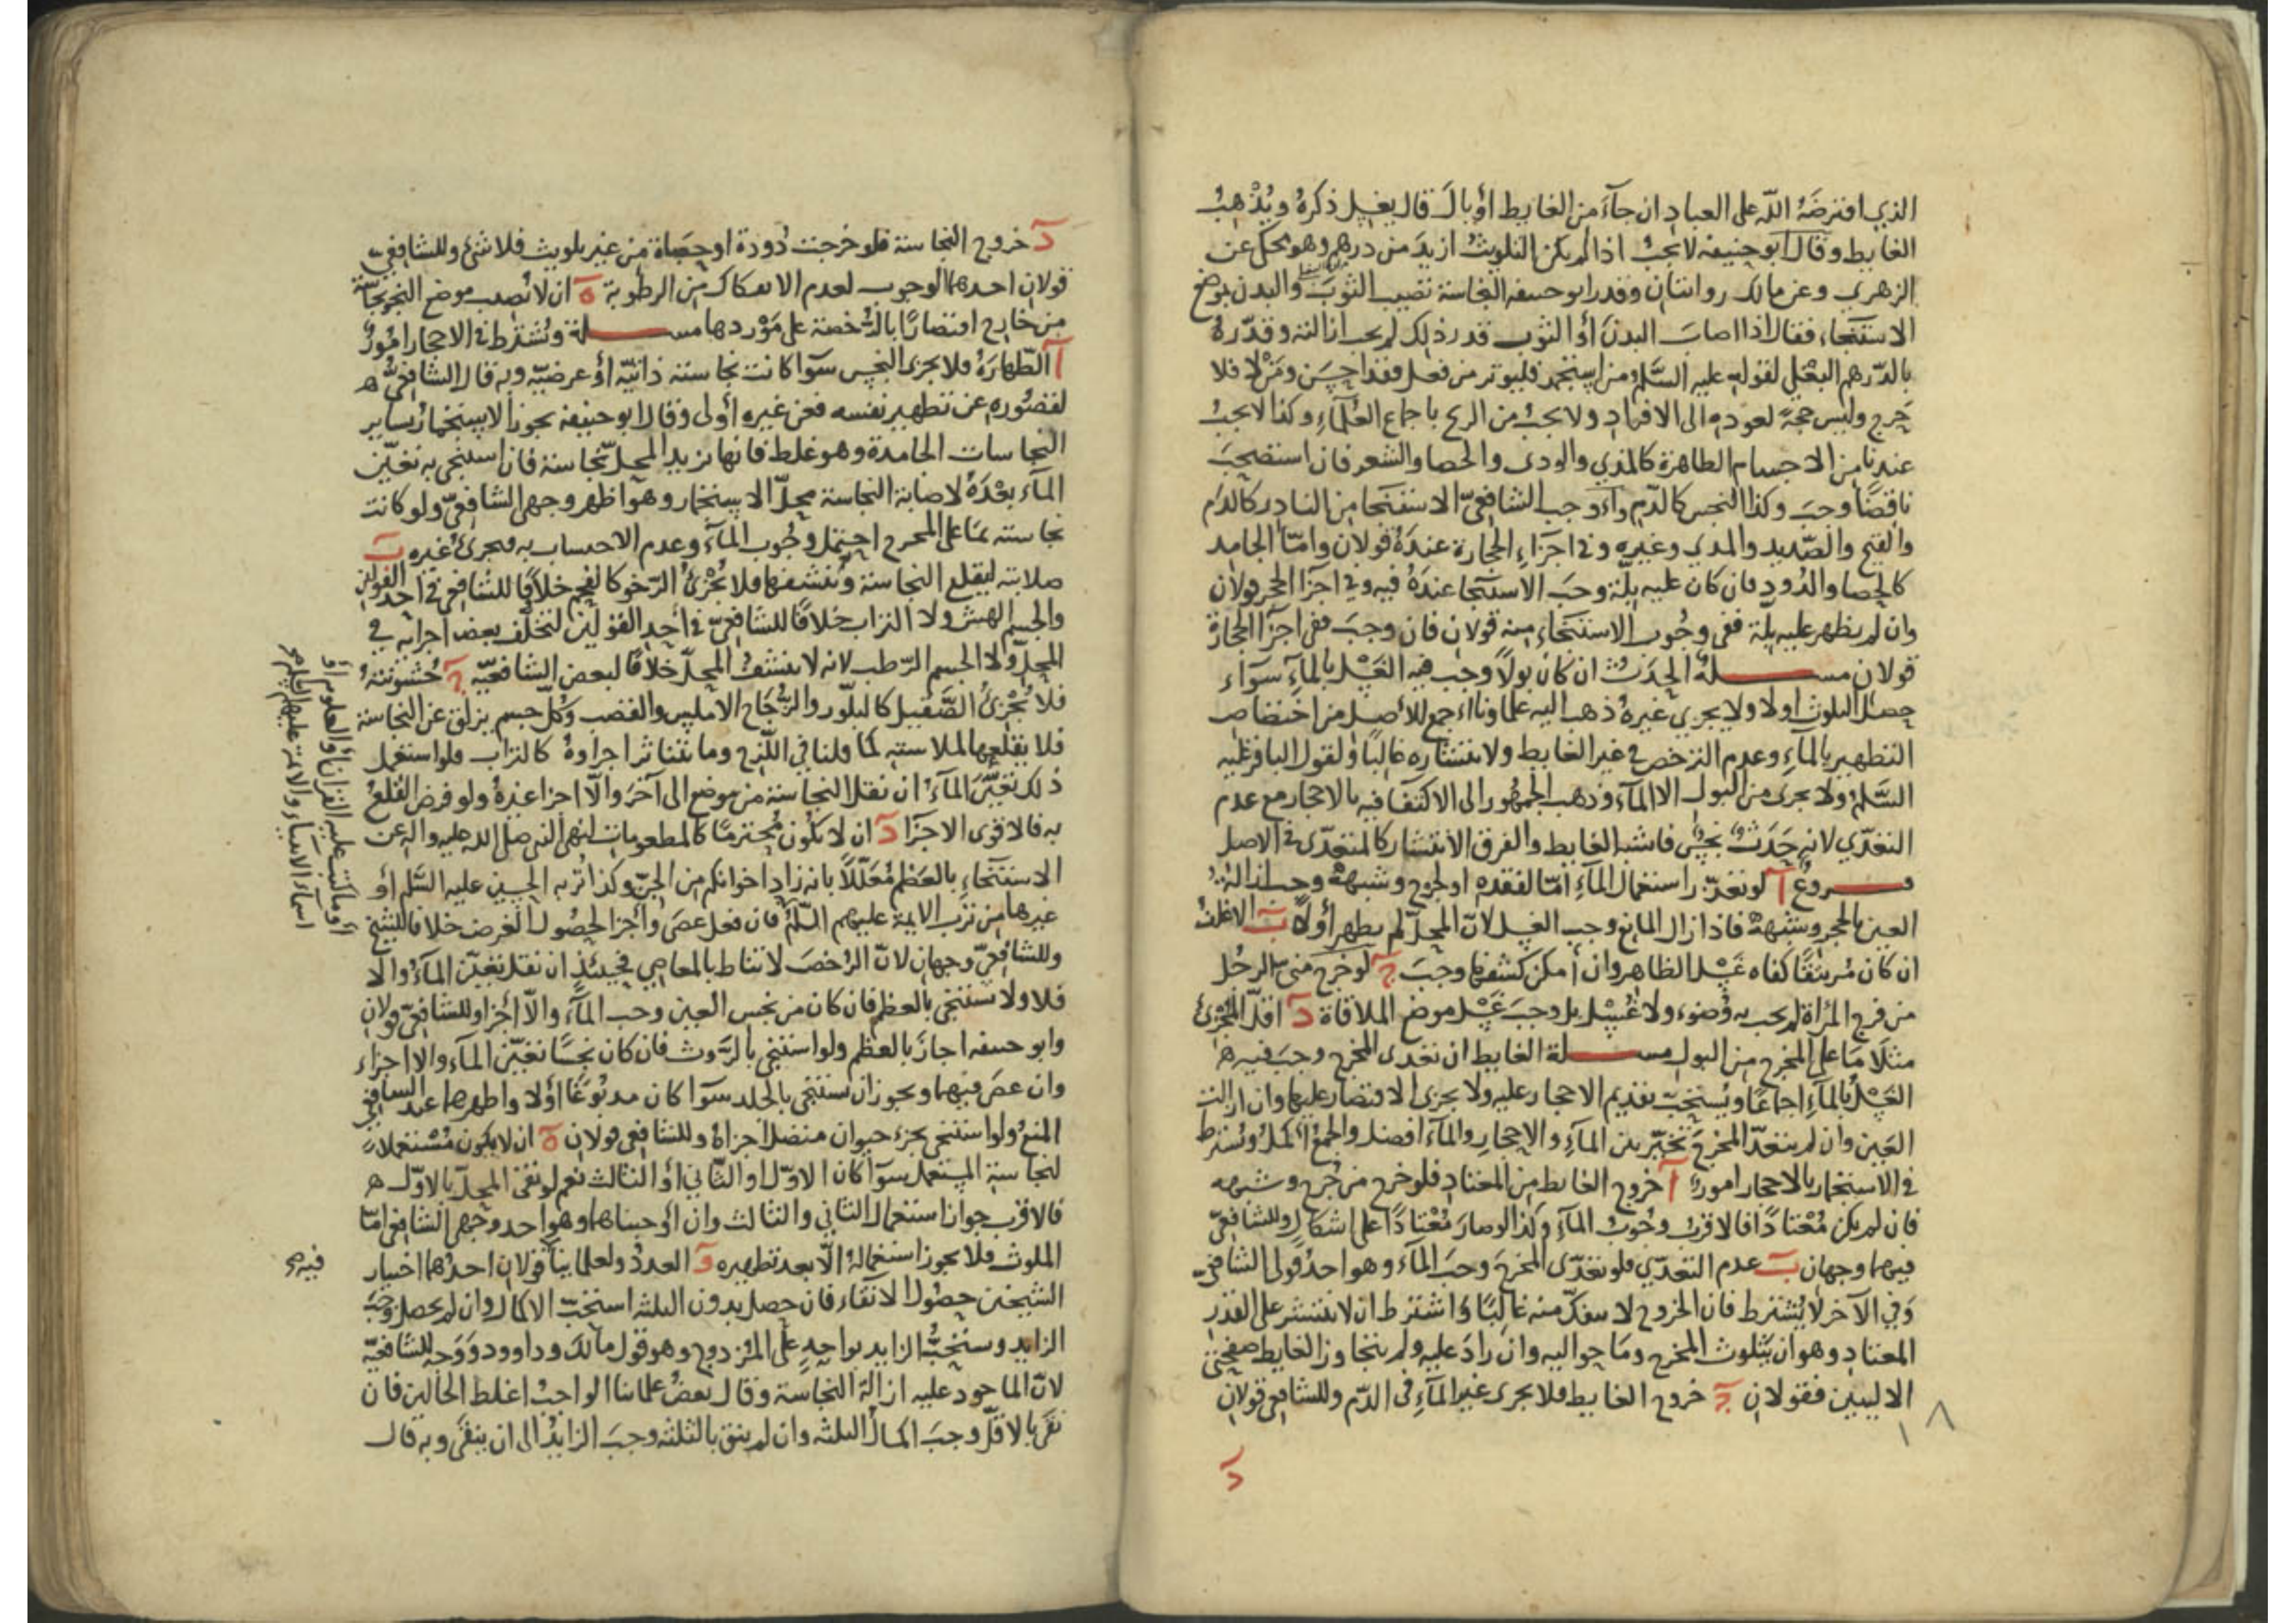 الذي افترضه الله على العباد ان جآء من الغايط أو بال قال يغسل ذكره ويذهب
الغايط وقال ابو حنيفه لا يجب اذا لم يكن التلويث ازيد من درهم وهو محكى عن
الزهري وعن مالك روايتان وقدر ابو حنيفه النجاسة تصيب الثوب والبدن بموضع
الاستنجاء فقال اذا اصاب البدن أو الثوب قدر ذلك لم يجب ازالته وقدره
بالدرهم البغلي لقوله عليه السلم من استجمر فليوتر من فعل فقد احسن ومن لا فلا
حرج وليس حجة لعوده الى الافراد ولا يجب من الريح باجماع العلمآء وكذا لا يجب
عندنا من الاجسام الطاهرة كالمذي والودى والحصا والشعر فان استصحب
ناقضا وجب وكذا النجس كالدم وأوجب الشافعي الاستنجا من النادر كالدم
والقيح والصديد والمذي وغيره وفي اجزاء الحجارة عنده قولان وامّا الجامد
كالحصا والدود فان كان عليه بلّة وجب الاستنجا عنده فيه وفي اجزا الحجر قولان
وان لم يظهر عليه بلّة ففي وجوب الاستنجاء منه قولان فان وجب ففي اجزا الحجارة
قولان مسلة الحدث ان كان بولا وجب فيه الغسل بالمآء سوآء
حصل التلوث اولا ولا يجزي غيره ذهب اليه علماونا اجمع للأصل من اختصاص
التطهير بالمآء وعدم الترخص في غير الغايط ولانتشاره غالبا ولقول الباقر عليه
السلم ولا يجزى من البول الا المآء وذهب الجمهور الى الاكتفا فيه بالاحجار مع عدم
التعدّي لانه حدث نجس فاشبه الغايط والفرق الانتشار كالمتعدّى في الاصل
فروع آ لو تعذر استعمال المآء امّا لفقده او لجرح وشبهه وجب ازالة
العين بالحجر وشبهه فاذا زال المانع وجب الغسل لان المحل لم يطهر أولا ب الاغلف
ان كان مرتتقا كفاه غسل الظاهر وان أمكن كشفها وجب ج لو خرج مني الرجل
من فرج المرأة لم يجب به وضوء ولا غسل بل وجب غسل موضع الملاقاة د اقل المجزئ
مثلا ما على المخرج من البول مسلة الغايط ان تعدى المخرج وجب فيه
الغسل بالمآء اجماعا ويستحب تقديم الاحجار عليه ولا يجزى الاقتصار عليها وان ازالت
العين وان لم يتعدّ المخرج تخيّر بين المآء والاحجار والمآء افضل والجمع اكمل ويشترط
في الاستجمار بالاحجار امور آ خروج الغايط من المعتاد فلو خرج من جرح وشبهه
فان لم يكن معتادا فالاقرب وجوب المآء وكذا لو صار معتادا على اشكال وللشافعي
فيهما وجهان ب عدم التعدّي فلو تعدّى المخرج وجب المآء وهو احد قولى الشافعي
وفي الآخر لا يشترط فان الخروج لا ينفكّ منه غالبا واشترط ان لا ينتشر على القدر
المعتاد وهو ان يتلوث المخرج وما حواليه وان زاد عليه ولم يتجاوز الغايط صفحتي
الاليين فقولان ج خروج الغايط فلا يجزى غير المآء في الدّم وللشافعي قولان
١٨
د
د خروج النجاسة فلو خرجت دودة او حصاة من غير تلويث فلا شئ وللشافعي
قولان احدهما الوجوب لعدم الانفكاك من الرطوبة ه ان لا تصيب موضع النجو نجاسة
من خارج اقتصارا بالرخصة على موردها مسلة ويشترط في الاحجار امور
آ الطهارة فلا يجزى النجس سوآ كانت نجاسته ذاتية أو عرضية وبه قال الشافعي
لقصوره عن تطهير نفسه فعن غيره أولى وقال ابو حنيفه يجوز الاستجمار بساير
النجاسات الجامدة وهو غلط فانها تزيد المحل نجاسة فان استنجى به تعيّن
المآء بعده لاصابة النجاسة محل الاستجمار وهو اظهر وجهي الشافعي ولو كانت
نجاسته مما على المخرج احتمل وجوب المآء وعدم الاحتساب به فيجزئ غيره ب
صلابته ليقلع النجاسة وينشفها فلا يجزئ الرخو كالفحم خلافا للشافعي في احد القولين
والجسم الهش ولا التراب خلافا للشافعي في أحد القولين لتخلف بعض اجزائه في
المحل ولا الجسم الرطب لانه لا ينشف المحل خلافا لبعض الشافعية ج خشونته
فلا يجزئ الصقيل كالبلور والزجاج الاملس والقصب وكل جسم يزلق عن النجاسة
فلا يقلعها لملاسته كما قلنا في اللزج وما يتناثر اجزاوه كالتراب فلو استعمل
ذلك تعيّن المآء ان نقل النجاسة من موضع الى آخر والّا اجزا غيره ولو فرض القلع
به فالاقوى الاجزا د ان لا يكون محترما كالمطعومات لنهي النبي صلى الله عليه واله عن
الاستنجاء بالعظم معللا بانه زاد اخوانكم من الجن وكذا تربه الحسين عليه السلم أو
غيرها من ترب الايمة عليهم السلم فان فعل عصى وأجزا لحصول الغرض خلافا للشيخ
وللشافعي وجهان لان الرخص لا تناط بالمعاصي فحينئذ ان نقل تعيّن المآء والّا
فلا ولا يستنجي بالعظم فان كان من نجس العين وجب المآء والّا أجزا وللشافعي قولان
وابو حنيفه اجاز بالعظم ولو استنجى بالروث فان كان نجسا تعيّن المآء والا اجزاء
وان عصى فيهما ويجوز ان يستنجي بالجلد سوآ كان مدبوغا أولا واظهرهما عند الشافعي
المنع ولو استنجى بجزء حيوان متصل اجزاه وللشافعي قولان ه ان لا يكون مستعملا
لنجاسة المستعمل سوآ كان الاوّل او الثاني أو الثالث نعم لو نقى المحل بالاوّل
فالاقرب جواز استعمال الثاني والثالث وان أوجبناهما وهو احد وجهي الشافعي امّا
الملوث فلا يجوز استعماله الّا بعد تطهيره و العدد ولعلماينا قولان احدهما اختيار
الشيخين حصول الانقاء فان حصل بدون الثلثه استحب الاكمال وان لم يحصل وجب
الزايد ويستحب الزايد بواحد على المزدوج وهو قول مالك وداوود ووجه للشافعية
لان الماخوذ عليه ازالة النجاسة وقال بعض علماينا الواجب اغلظ الحالين فان
نقى بالاقل وجب اكمال الثلثه وان لم ينق بالثلثه وجب الزايد الى ان ينقى وبه قال
أو ما كتب عليه القرآن أو العلوم أو
اسماء الانبياء والائمة عليهم السلم
فيه